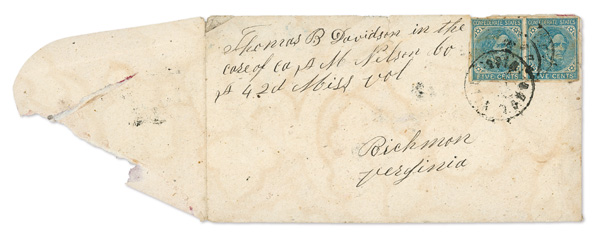 CONFEDERATE STATES CONFEDERATE STATES
FIVE CENTS FIVE CENTS
Thomas B Davidson in the
care of ca pt M Nelson co
42d Miss vol
Richmon
verginia